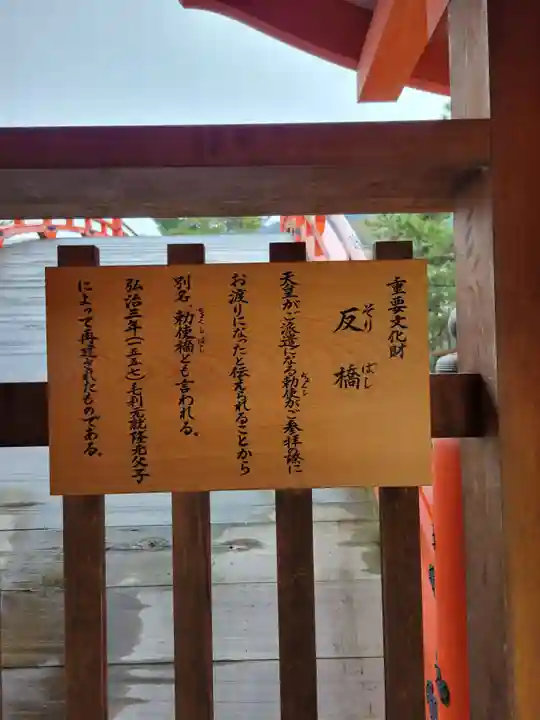 重要文化財
反橋
そりばし
天皇がご派遣になる勅使がご参拝の際に
ちょくし
お渡りになったと伝えられることから
別名、勅使橋とも言われる。
ちょくしばし
弘治三年(一五五七)毛利元就隆元父子
によって再造されたものである。